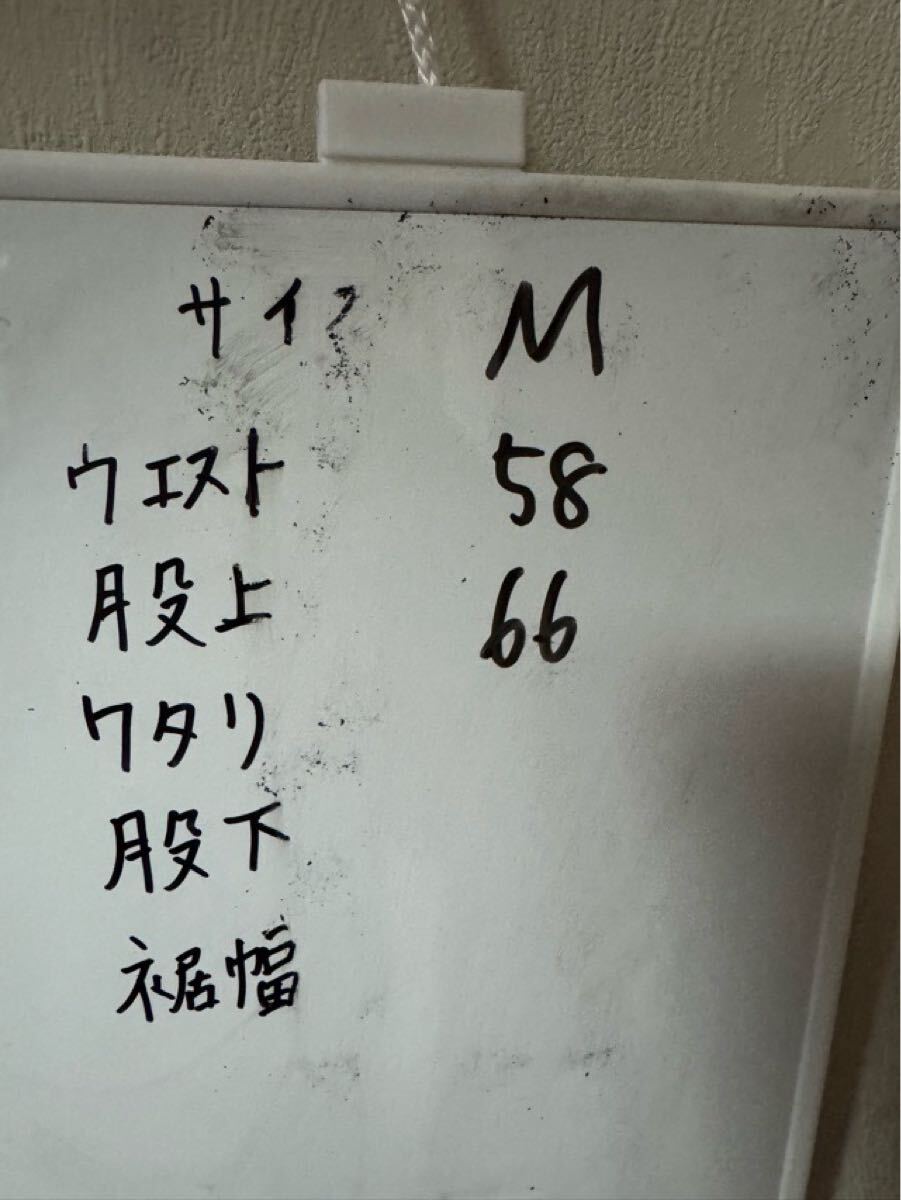 サイズ M
ウエスト 58
股上 66
ワタリ
股下
裾幅